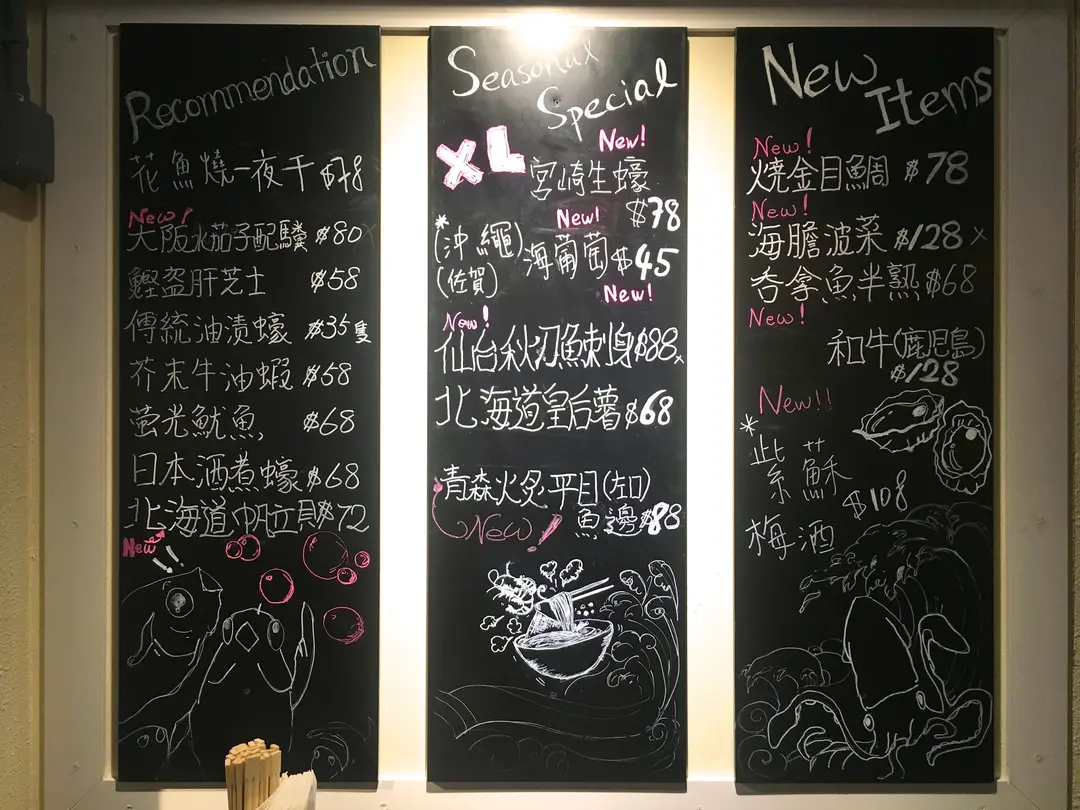 Recommendation
花魚燒一夜干 $78
New!
大阪水茄子配 $80x
鰹盜肝芝士 $58
傳統油漬蠔 $35隻
芥末牛油蝦 $58
螢光魷魚 $68
日本酒煮蠔 $68
北海道帆立貝 $72
New
Seasonal
Special
XL New!
宮崎生蠔
New! $78
*(沖繩) 海葡萄 $45
(佐賀)
New!
New!
仙台秋刀魚刺身 $88x
北海道皇后薯 $68
青森火炙平目(左口)
New! 魚邊 $88
New
Items
New!
燒金目鯛 $78
New!
海膽波菜 $128x
吞拿魚半熟 $68
New!
和牛(鹿児島)
$128
New!!
*紫蘇
$108
梅酒